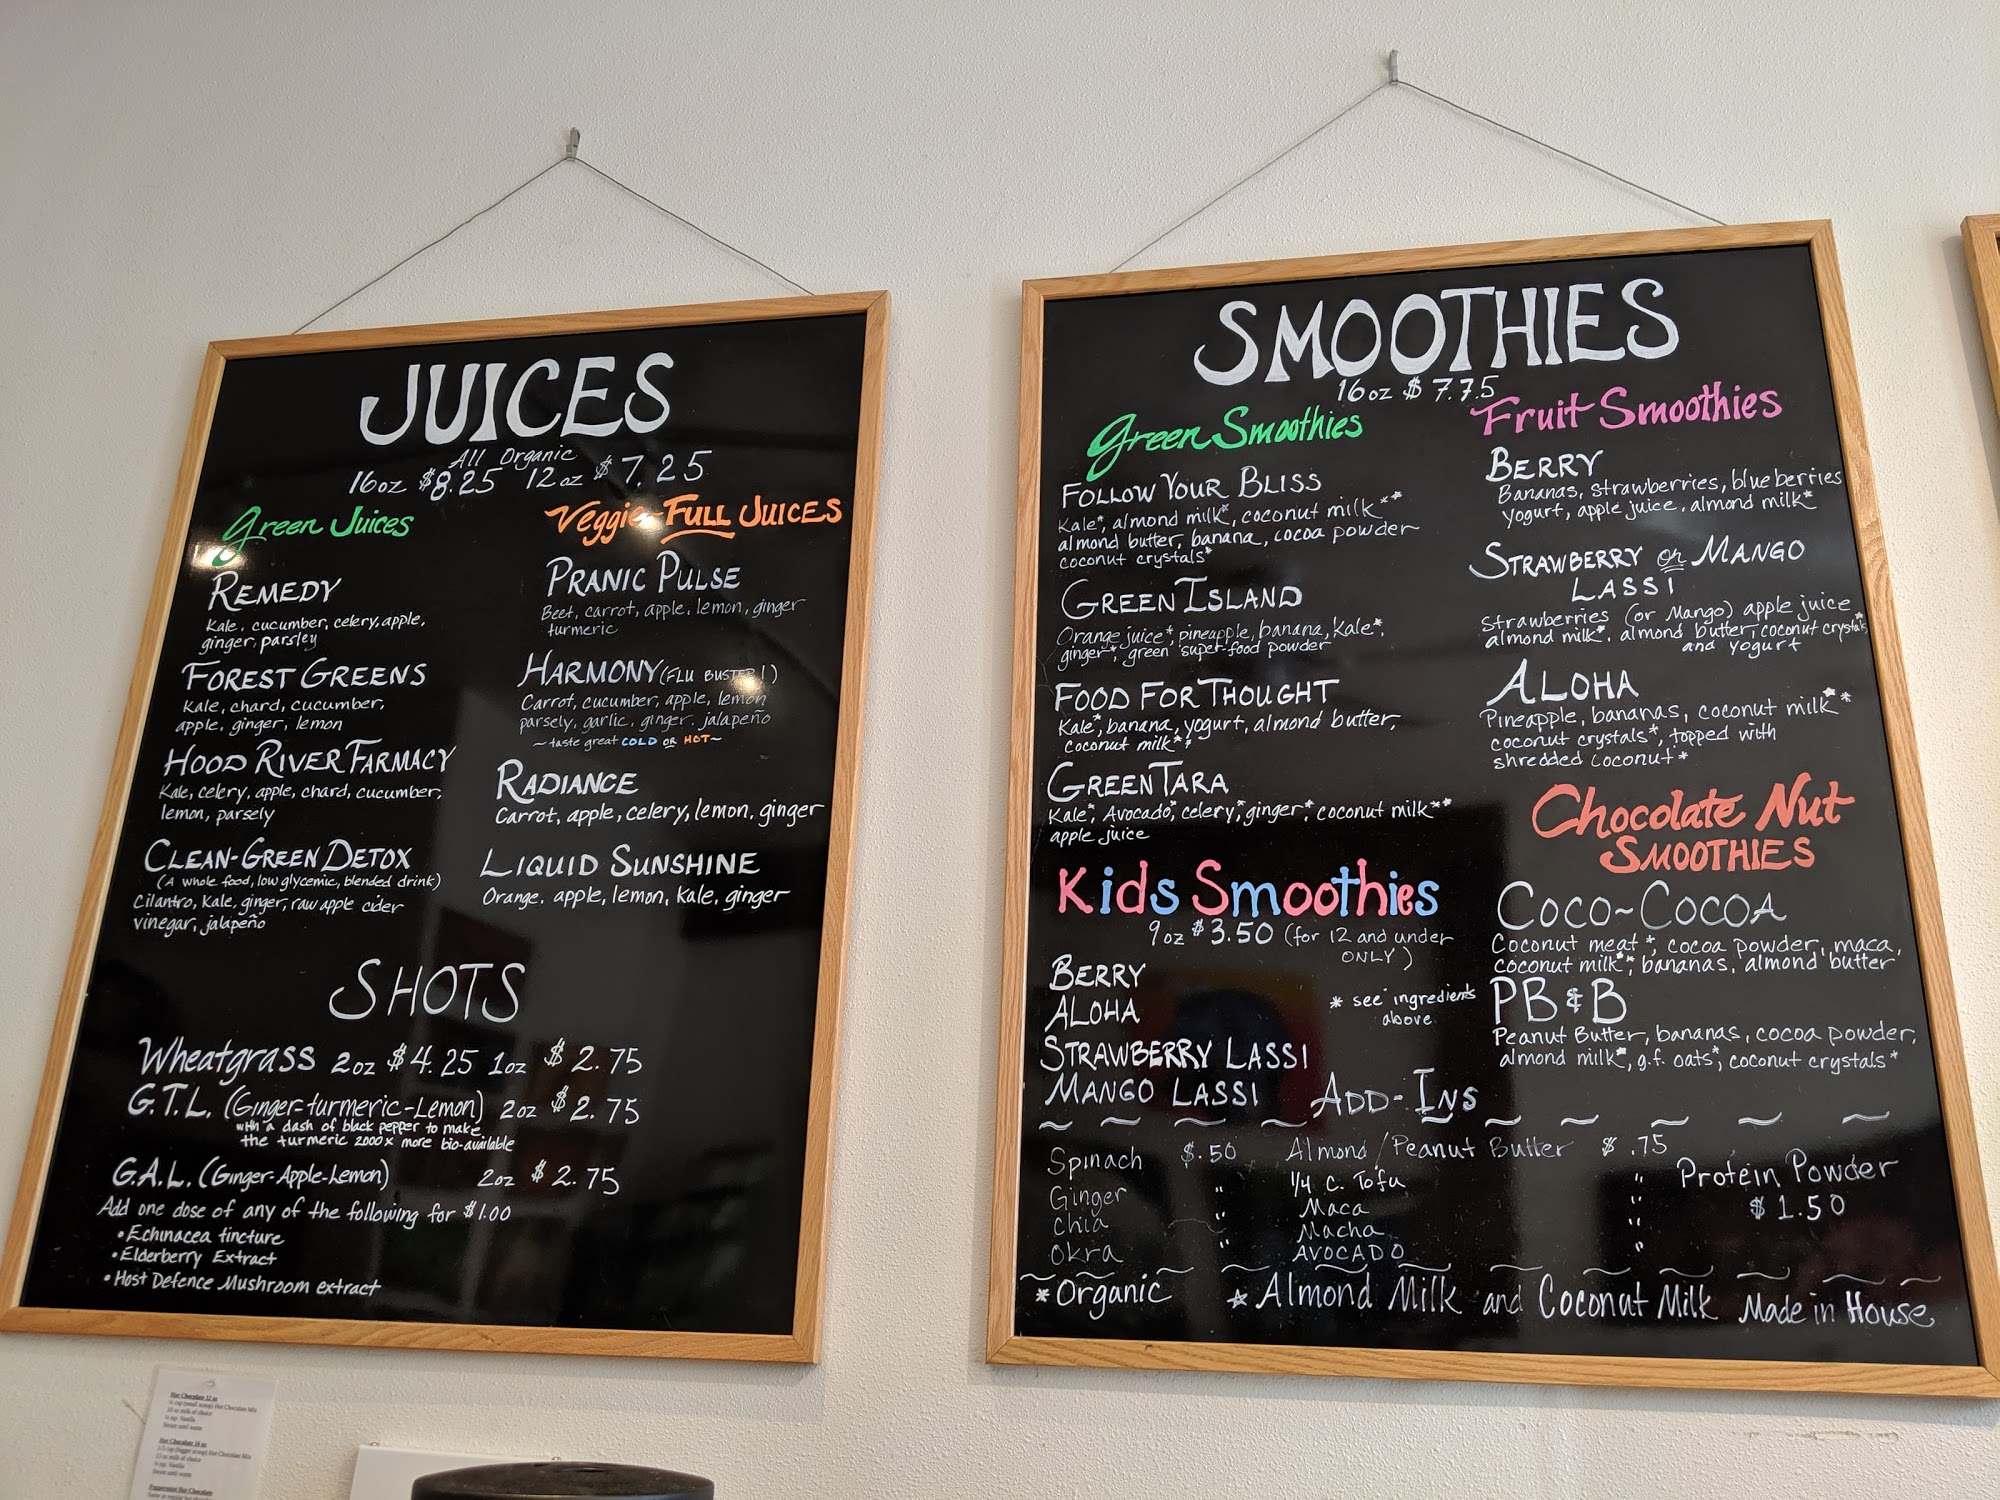 JUICES
All Organic
16oz $8.25 12oz $7.25
Green Juices
REMEDY
Kale, cucumber, celery, apple,
ginger, parsley
FOREST GREENS
Kale, chard, cucumber,
apple, ginger, lemon
HOOD RIVER FARMACY
Kale, celery, apple, chard, cucumber,
lemon, parsely
CLEAN-GREEN DETOX
(A whole food, low glycemic, blended drink)
Cilantro, Kale, ginger, raw apple cider
vinegar, jalapeño
Veggie-FULL JUICES
PRANIC PULSE
Beet, carrot, apple, lemon, ginger
turmeric
HARMONY (FLU BUSTER!)
Carrot, cucumber, apple, lemon
parsely, garlic, ginger, jalapeño
~taste great COLD OR HOT~
RADIANCE
Carrot, apple, celery, lemon, ginger
LIQUID SUNSHINE
Orange, apple, lemon, Kale, ginger
SHOTS
Wheatgrass 2oz $4.25 1oz $2.75
G.T.L. (Ginger-turmeric-Lemon) 2oz $2.75
with a dash of black pepper to make
the turmeric 2000x more bio-available
G.A.L. (Ginger-Apple-Lemon) 2oz $2.75
Add one dose of any of the following for $1.00
• Echinacea tincture
• Elderberry Extract
• Host Defence Mushroom extract
SMOOTHIES
16oz $7.75
Green Smoothies
FOLLOW YOUR BLISS
Kale*, almond milk*, coconut milk**
almond butter, banana, cocoa powder
coconut crystals*
GREEN ISLAND
Orange juice*, pineapple, banana, Kale*,
ginger*, green super-food powder
FOOD FOR THOUGHT
Kale*, banana, yogurt, almond butter,
coconut milk**
GREEN TARA
Kale*, Avocado*, celery*, ginger*, coconut milk**
apple juice
Kids Smoothies
9oz $3.50 (for 12 and under
ONLY)
BERRY
ALOHA
STRAWBERRY LASSI
MANGO LASSI
* see ingredients
above
Fruit Smoothies
BERRY
Bananas, strawberries, blueberries
yogurt, apple juice, almond milk*
STRAWBERRY or MANGO
LASSI
Strawberries (or Mango) apple juice
almond milk*, almond butter, coconut crystals*
and yogurt
ALOHA
Pineapple, bananas, coconut milk**
coconut crystals*, topped with
shredded coconut*
Chocolate Nut
SMOOTHIES
COCO~COCOA
Coconut meat*, cocoa powder, maca,
coconut milk**, bananas, almond butter
PB & B
Peanut Butter, bananas, cocoa powder,
almond milk*, g.f. oats*, coconut crystals*
ADD-INS
Spinach $.50 Almond/Peanut Butter $.75
Ginger " 1/4 c. Tofu "
chia " Maca "
Okra " Macha "
AVOCADO "
Protein Powder
$1.50
*Organic ☆Almond Milk and Coconut Milk Made in House
Hot Chocolate 12 oz
Hot Chocolate 16 oz
Peppermint Hot Chocolate